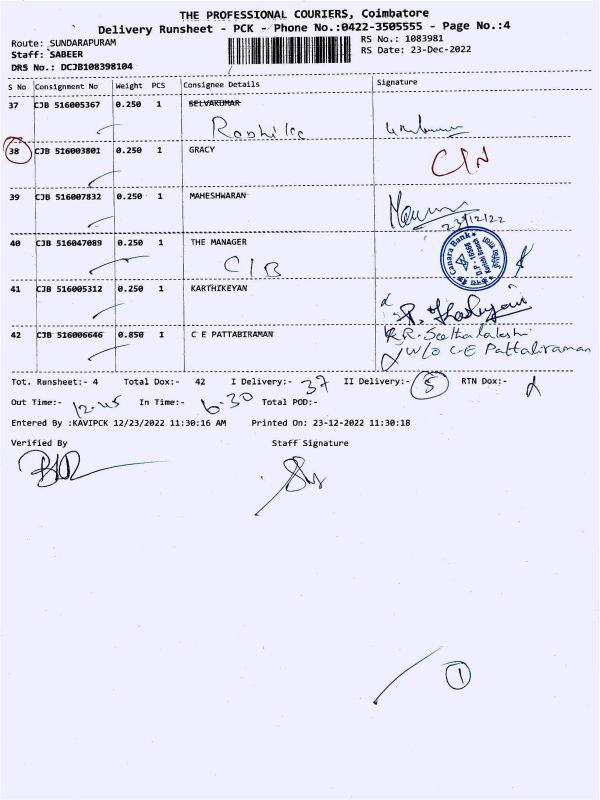 THE PROFESSIONAL COURIERS, Coimbatore
Delivery Runsheet - PCK - Phone No.:0422-3505555 - Page No.:4
Route: SUNDARAPURAM
RS No.: 1083981
Staff: SABEER
RS Date: 23-Dec-2022
DRS No.: DCJB108398104
S No Consignment No Weight PCS Consignee Details Signature
37 CJB 516005367 0.250 1 SELVAKUMAR
38 CJB 516003801 0.250 1 GRACY CIN
39 CJB 516007832 0.250 1 MAHESHWARAN
23/12/22
40 CJB 516047089 0.250 1 THE MANAGER
CIB
Canara Bank
41 CJB 516005312 0.250 1 KARTHIKEYAN
42 CJB 516006646 0.850 1 C E PATTABIRAMAN
W/O C.E Pattabiraman
Tot. Runsheet:- 4 Total Dox:- 42 I Delivery:- 37 II Delivery:- 5 RTN Dox:-
Out Time:- 12-45 In Time:- 6-30 Total POD:-
Entered By :KAVIPCK 12/23/2022 11:30:16 AM Printed On: 23-12-2022 11:30:18
Verified By Staff Signature
1